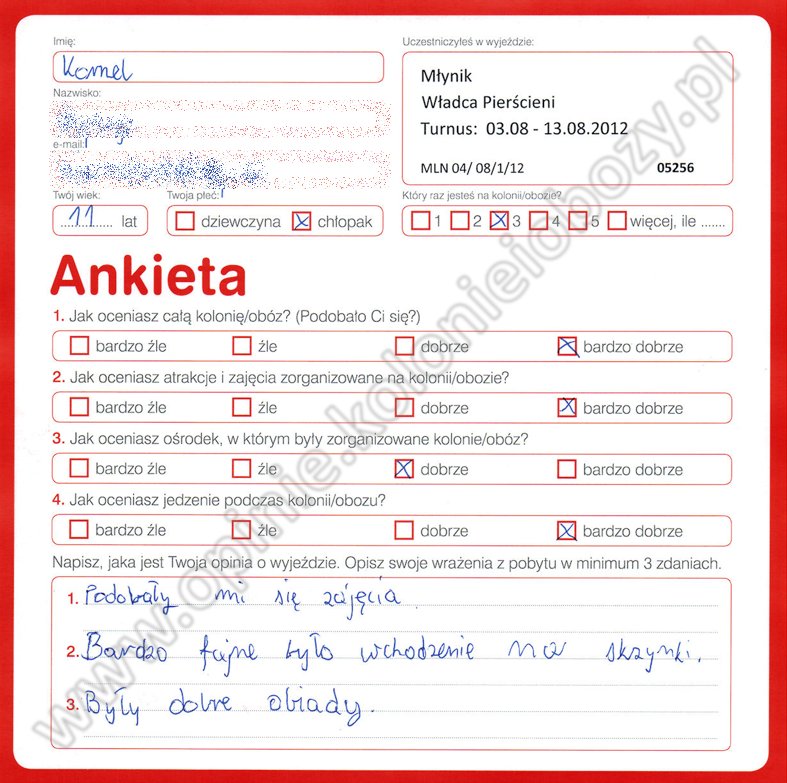 Imię:
Kornel
Nazwisko:
e-mail:
Twój wiek:
11 lat
Twoja płeć:
dziewczyna chłopak
Uczestniczyłeś w wyjeździe:
Młynik
Władca Pierścieni
Turnus: 03.08 - 13.08.2012
MLN 04/ 08/1/12 05256
Który raz jesteś na kolonii/obozie?
1 2 3 4 5 więcej, ile .......
Ankieta
1. Jak oceniasz całą kolonię/obóz? (Podobało Ci się?)
bardzo źle źle dobrze bardzo dobrze
2. Jak oceniasz atrakcje i zajęcia zorganizowane na kolonii/obozie?
bardzo źle źle dobrze bardzo dobrze
3. Jak oceniasz ośrodek, w którym były zorganizowane kolonie/obóz?
bardzo źle źle dobrze bardzo dobrze
4. Jak oceniasz jedzenie podczas kolonii/obozu?
bardzo źle źle dobrze bardzo dobrze
Napisz, jaka jest Twoja opinia o wyjeździe. Opisz swoje wrażenia z pobytu w minimum 3 zdaniach.
1. Podobały mi się zajęcia
2. Bardzo fajne było wchodzenie na skrzynki.
3. Były dobre obiady.
www.opinie.kolonieiobozy.pl